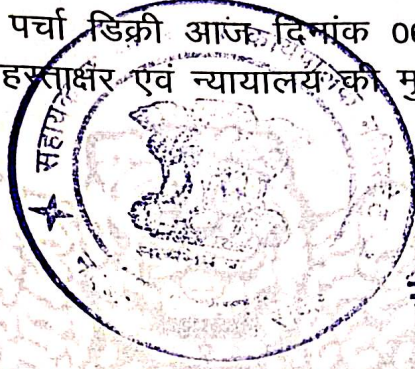 पर्चा डिक्री आज दिनांक 06
हस्ताक्षर एवं न्यायालय की मु
सहाय